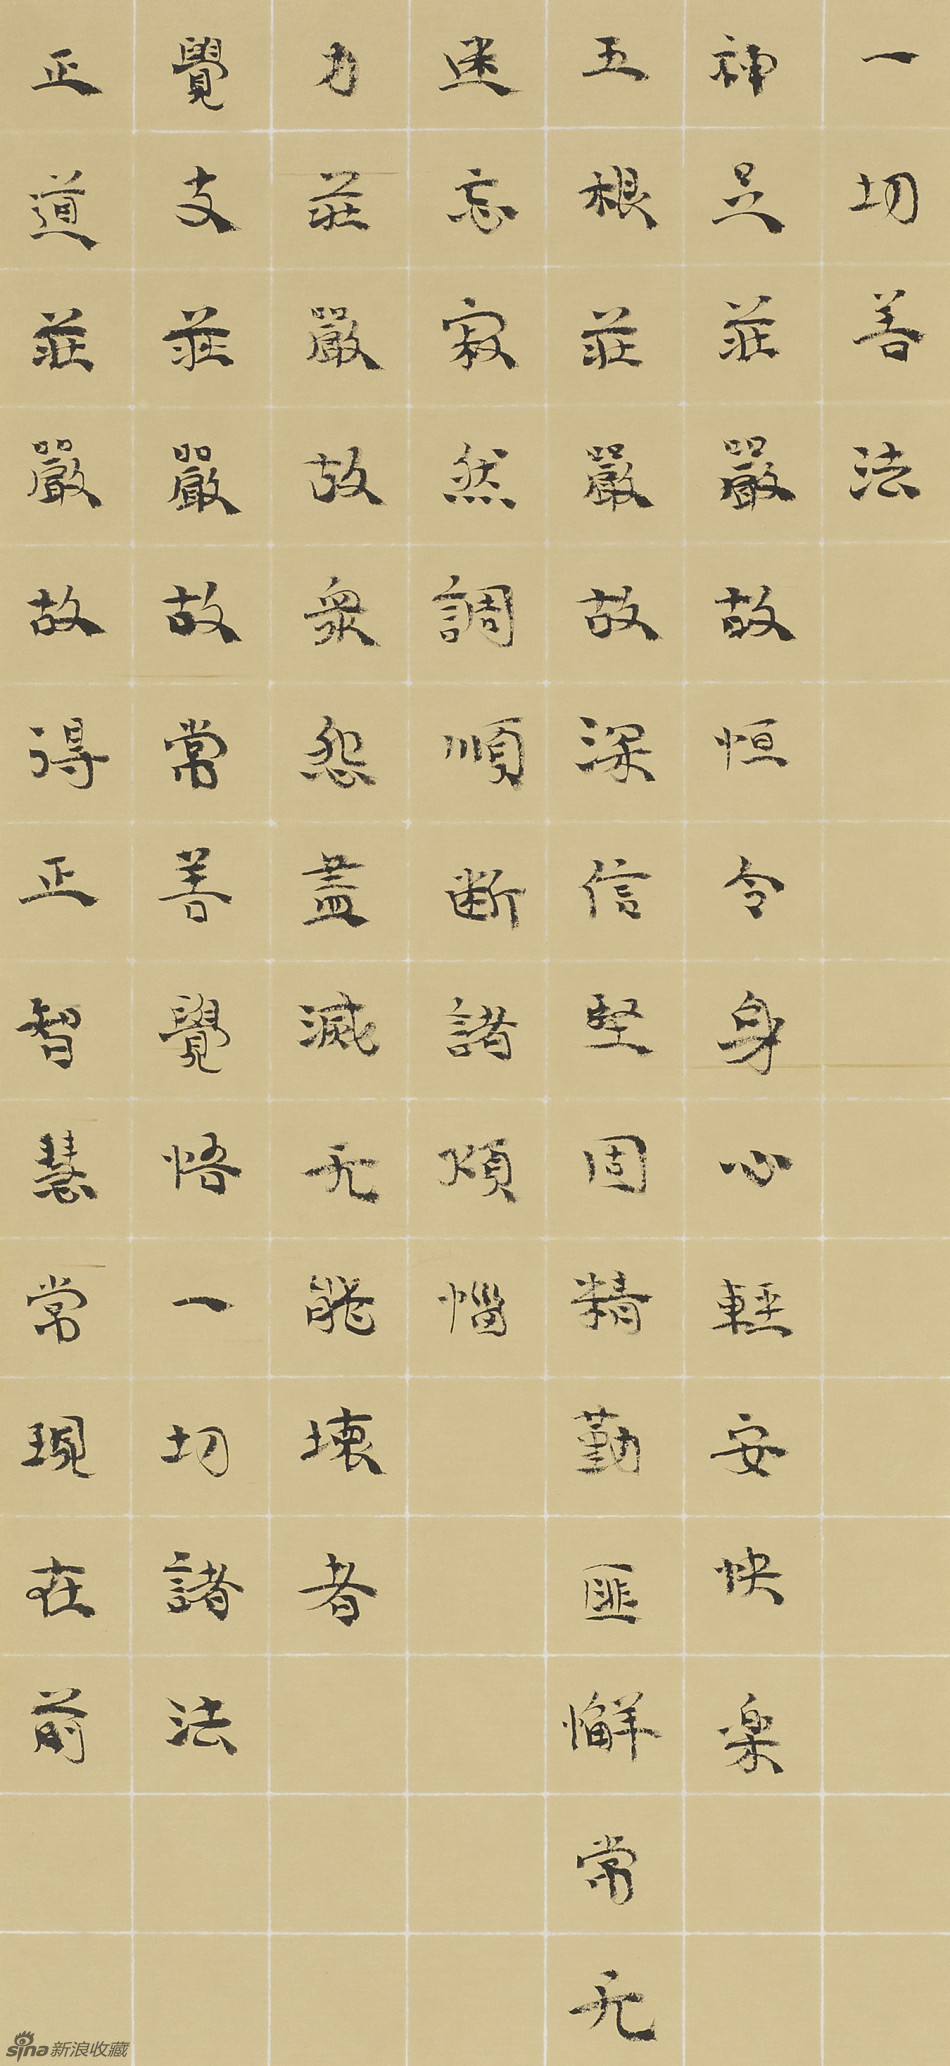 一切善法
神足莊嚴故恒令身心輕安快樂
五根莊嚴故深信堅固精勤匪懈常无
迷忘寂然調順断諸煩惱
力莊嚴故衆怨盡滅无能壞者
覺支莊嚴故常善覺悟一切諸法
正道莊嚴故得正智慧常現在前
sina 新浪收藏